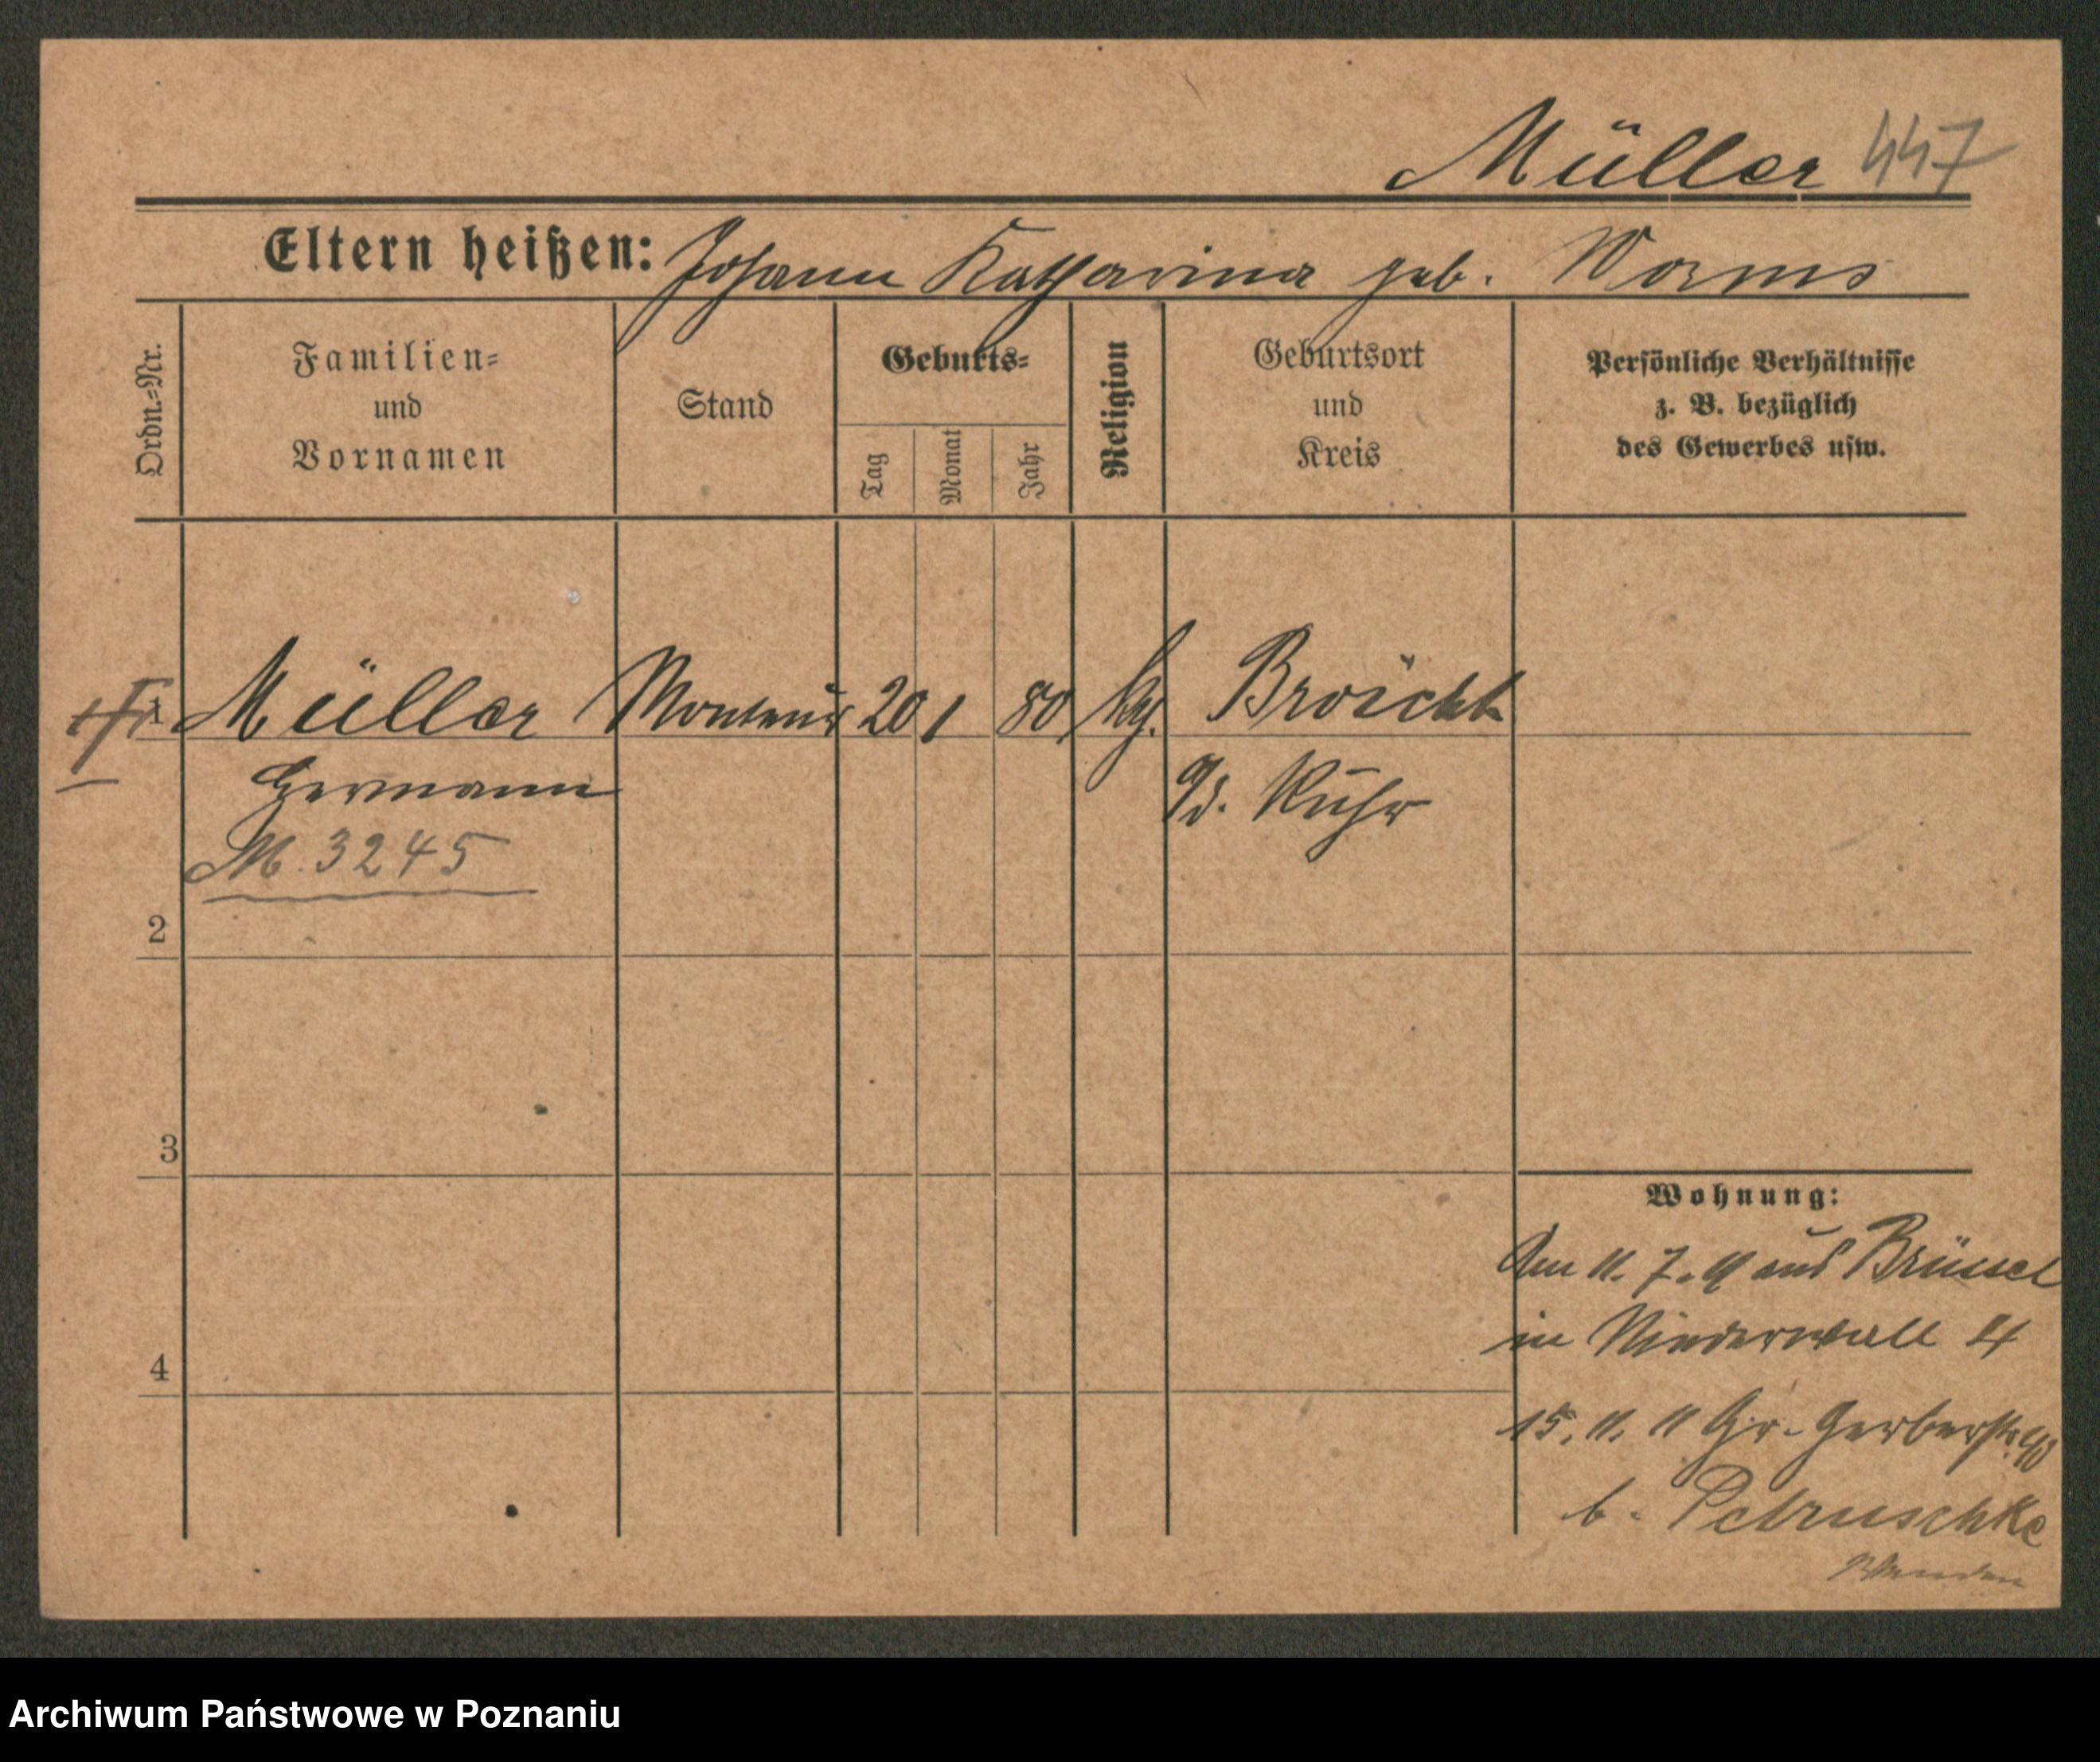 Müller 447
Eltern heißen: Johann Katharina geb. Worms
Ordn.=Nr.
Familien=
und
Vornamen
Stand
Geburts=
Tag
Monat
Jahr
Religion
Geburtsort
und
Kreis
Persönliche Verhältnisse
z. B. bezüglich
des Gewerbes usw.
1 Müller Monteur 20 1 80 Broicht
Hermann a/d. Ruhr
M. 3245
2
3
4
Wohnung:
Am 11. 7. 11 aus Brüssel
in Niederwall 4
15. 11. 11 Gr. Gerberstr.
b. Petruschke
Wenden
Archiwum Państwowe w Poznaniu